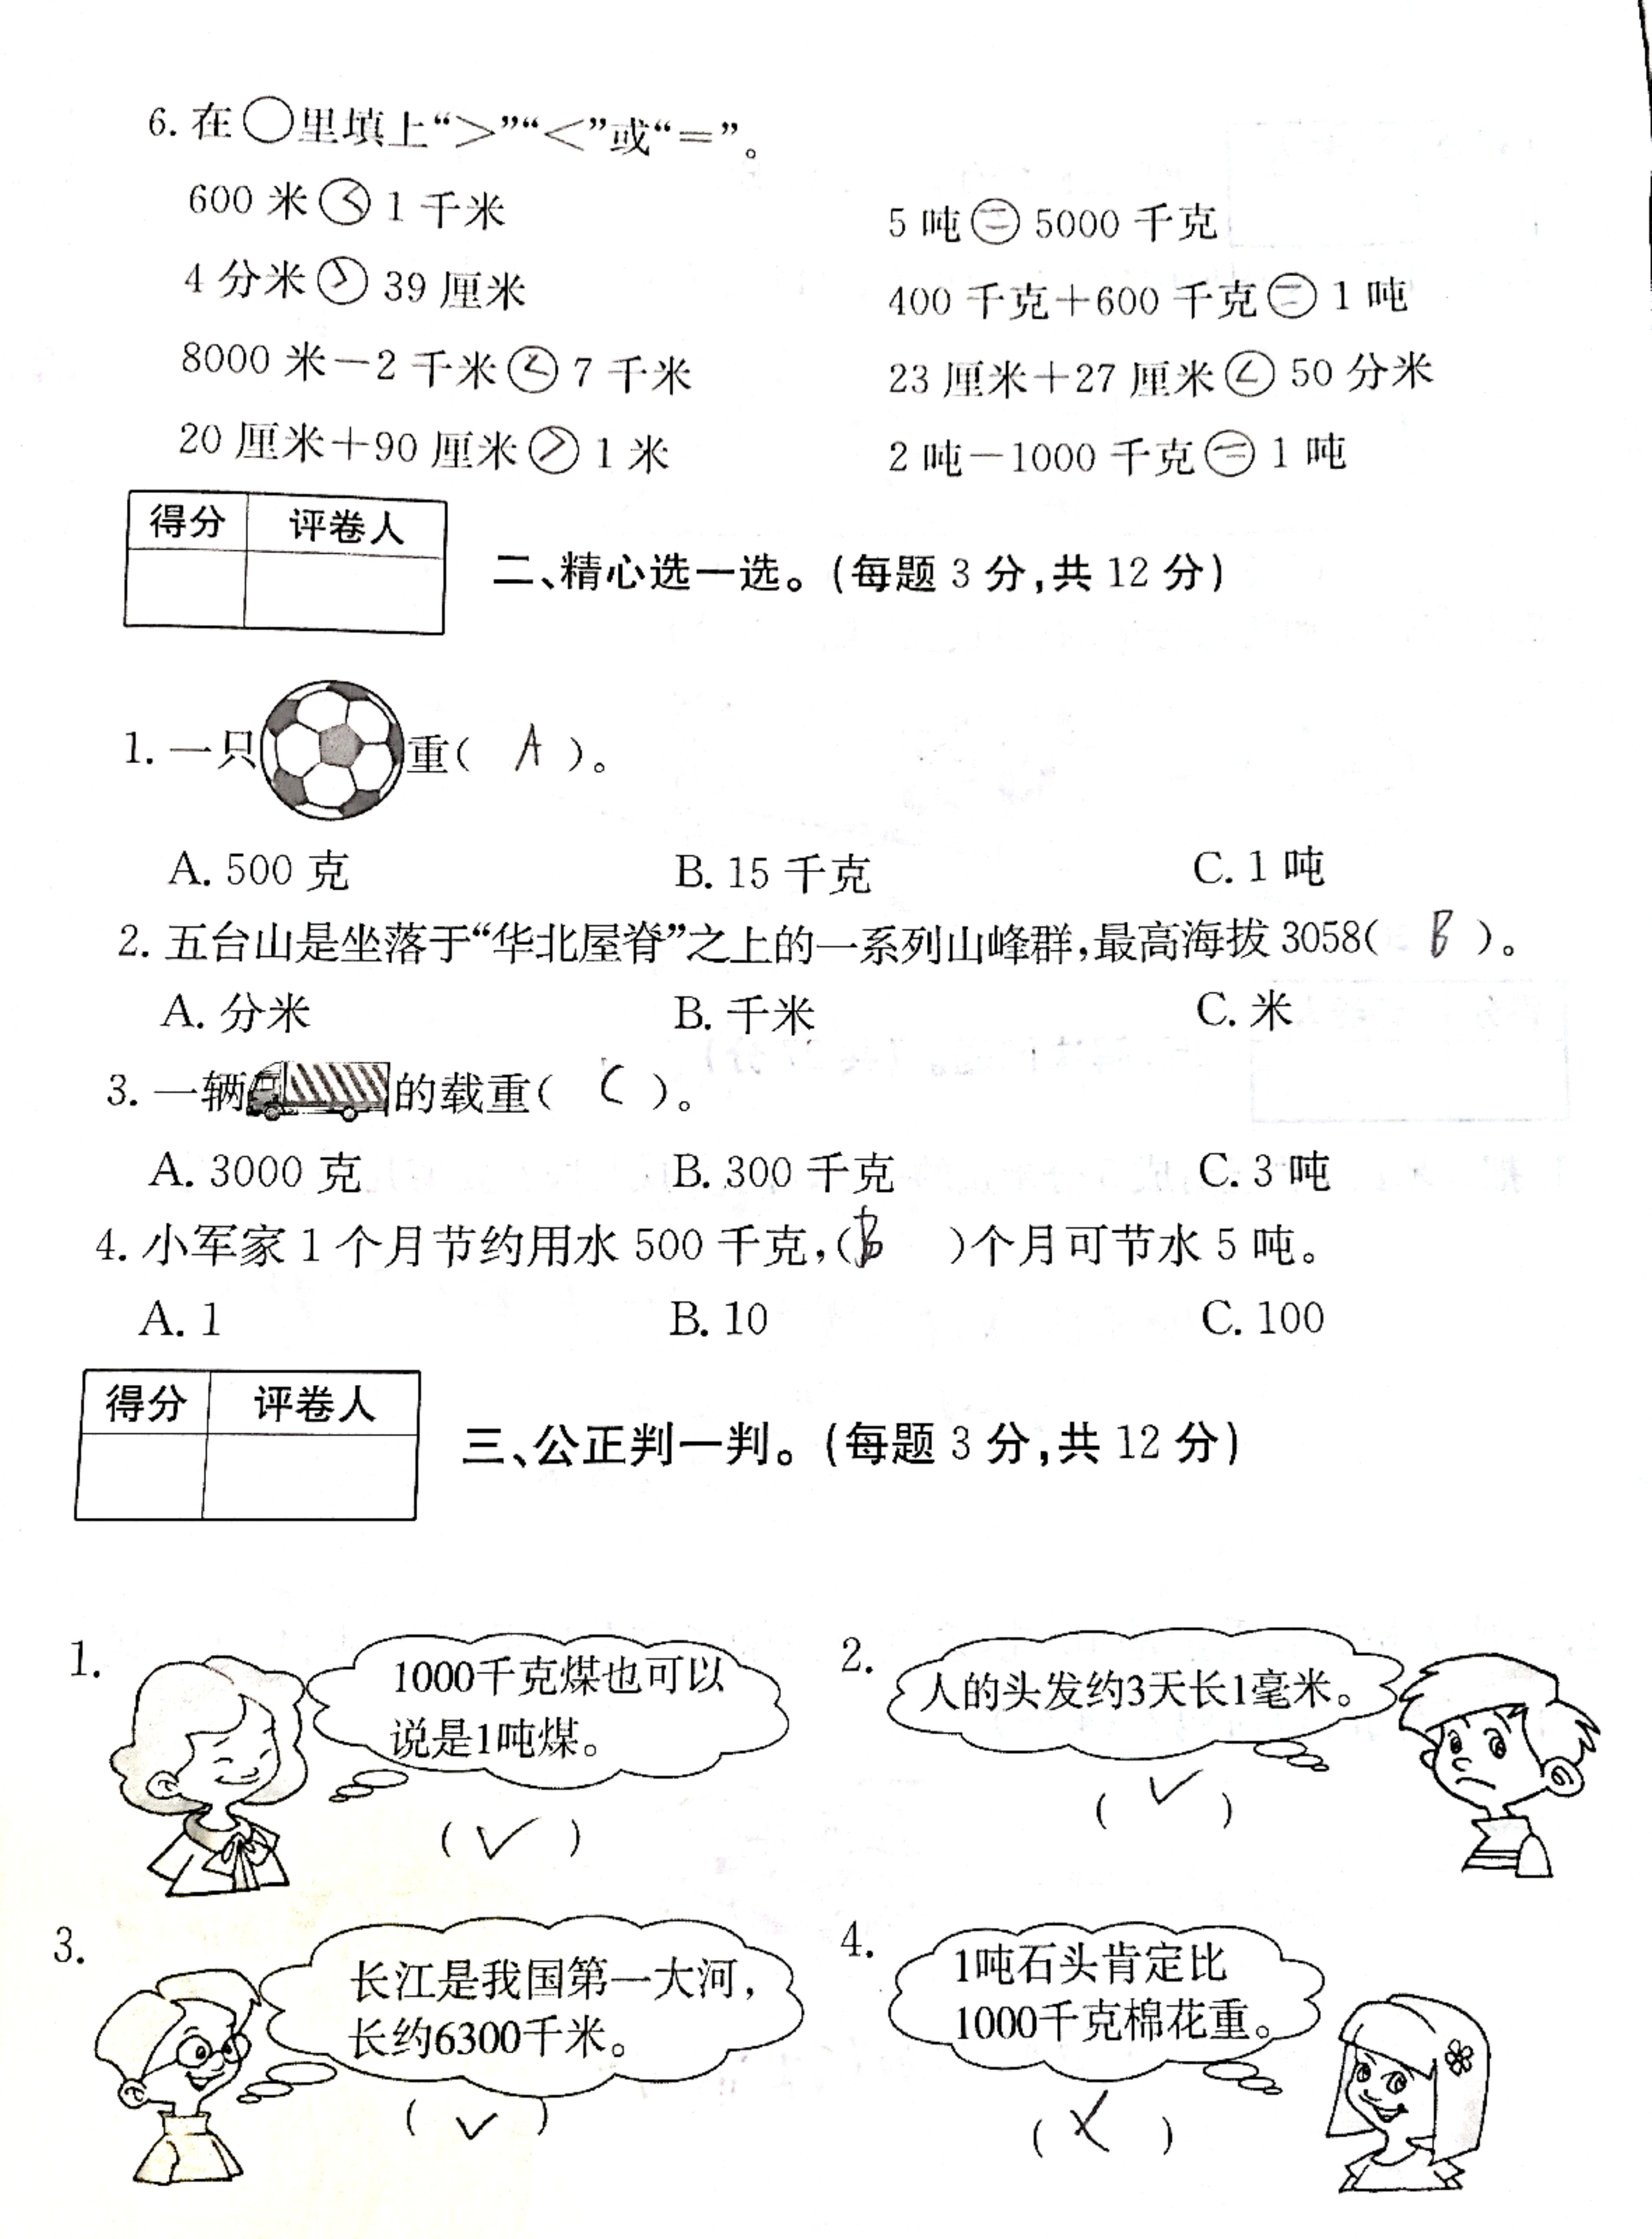 6. 在○里填上“>”“<”或“=”。
600 米<1 千米
5 吨=5000 千克
4 分米>39 厘米
400 千克+600 千克=1 吨
8000 米-2 千米<7 千米
23 厘米+27 厘米<50 分米
20 厘米+90 厘米>1 米
2 吨-1000 千克=1 吨
得分 评卷人
二、精心选一选。(每题 3 分,共 12 分)
1. 一只重( A )。
A. 500 克 B. 15 千克 C. 1 吨
2. 五台山是坐落于“华北屋脊”之上的一系列山峰群,最高海拔 3058( B )。
A. 分米 B. 千米 C. 米
3. 一辆的载重( C )。
A. 3000 克 B. 300 千克 C. 3 吨
4. 小军家 1 个月节约用水 500 千克,( B )个月可节水 5 吨。
A. 1 B. 10 C. 100
得分 评卷人
三、公正判一判。(每题 3 分,共 12 分)
1.
1000千克煤也可以
说是1吨煤。
( ✓ )
2.
人的头发约3天长1毫米。
( ✓ )
3.
长江是我国第一大河,
长约6300千米。
( ✓ )
4.
1吨石头肯定比
1000千克棉花重。
( X )